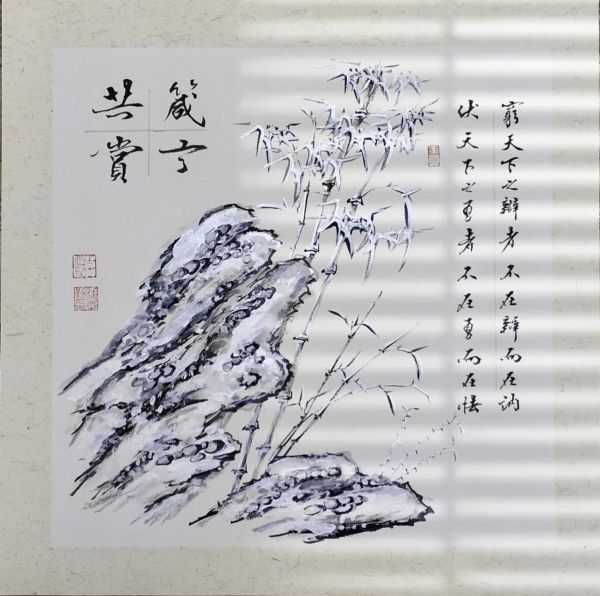 窮天下之辯者不在辯而在訥
伏天下之勇者不在勇而在怯
箴言
共賞